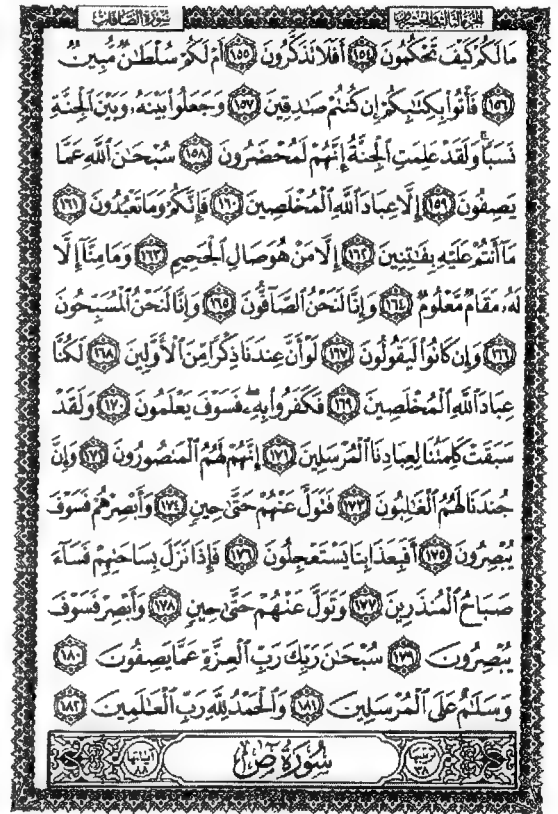 سورة الصافات الجزء الثالث والعشرون
مَا لَكُمْ كَيْفَ تَحْكُمُونَ ١٥٤ أَفَلَا تَذَكَّرُونَ ١٥٥ أَمْ لَكُمْ سُلْطَٰنٌ مُّبِينٌ
١٥٦ فَأْتُوا۟ بِكِتَٰبِكُمْ إِن كُنتُمْ صَٰدِقِينَ ١٥٧ وَجَعَلُوا۟ بَيْنَهُۥ وَبَيْنَ ٱلْجِنَّةِ
نَسَبًا ۚ وَلَقَدْ عَلِمَتِ ٱلْجِنَّةُ إِنَّهُمْ لَمُحْضَرُونَ ١٥٨ سُبْحَٰنَ ٱللَّهِ عَمَّا
يَصِفُونَ ١٥٩ إِلَّا عِبَادَ ٱللَّهِ ٱلْمُخْلَصِينَ ١٦٠ فَإِنَّكُمْ وَمَا تَعْبُدُونَ ١٦١
مَآ أَنتُمْ عَلَيْهِ بِفَٰتِنِينَ ١٦٢ إِلَّا مَنْ هُوَ صَالِ ٱلْجَحِيمِ ١٦٣ وَمَا مِنَّآ إِلَّا
لَهُۥ مَقَامٌ مَّعْلُومٌ ١٦٤ وَإِنَّا لَنَحْنُ ٱلصَّآفُّونَ ١٦٥ وَإِنَّا لَنَحْنُ ٱلْمُسَبِّحُونَ
١٦٦ وَإِن كَانُوا۟ لَيَقُولُونَ ١٦٧ لَوْ أَنَّ عِندَنَا ذِكْرًا مِّنَ ٱلْأَوَّلِينَ ١٦٨ لَكُنَّا
عِبَادَ ٱللَّهِ ٱلْمُخْلَصِينَ ١٦٩ فَكَفَرُوا۟ بِهِۦ ۖ فَسَوْفَ يَعْلَمُونَ ١٧٠ وَلَقَدْ
سَبَقَتْ كَلِمَتُنَا لِعِبَادِنَا ٱلْمُرْسَلِينَ ١٧١ إِنَّهُمْ لَهُمُ ٱلْمَنصُورُونَ ١٧٢ وَإِنَّ
جُندَنَا لَهُمُ ٱلْغَٰلِبُونَ ١٧٣ فَتَوَلَّ عَنْهُمْ حَتَّىٰ حِينٍ ١٧٤ وَأَبْصِرْهُمْ فَسَوْفَ
يُبْصِرُونَ ١٧٥ أَفَبِعَذَابِنَا يَسْتَعْجِلُونَ ١٧٦ فَإِذَا نَزَلَ بِسَاحَتِهِمْ فَسَآءَ
صَبَاحُ ٱلْمُنذَرِينَ ١٧٧ وَتَوَلَّ عَنْهُمْ حَتَّىٰ حِينٍ ١٧٨ وَأَبْصِرْ فَسَوْفَ
يُبْصِرُونَ ١٧٩ سُبْحَٰنَ رَبِّكَ رَبِّ ٱلْعِزَّةِ عَمَّا يَصِفُونَ ١٨٠
وَسَلَٰمٌ عَلَى ٱلْمُرْسَلِينَ ١٨١ وَٱلْحَمْدُ لِلَّهِ رَبِّ ٱلْعَٰلَمِينَ ١٨٢
ترتيبها ٣٨ سُورَةُ صٓ آياتها ٨٨